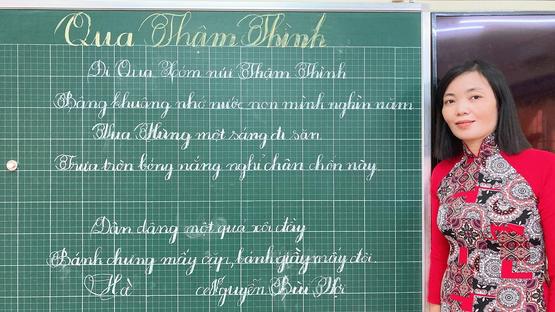 Qua Thậm Thình
Đi Qua Xóm núi Thậm Thình
Bâng khuâng nhớ nước non mình nghìn năm
Vua Hùng một sáng đi săn
Trưa tròn bóng nắng nghỉ chân chốn này
Dân dâng một quả xôi đầy
Bánh chưng mấy cặp, bánh giầy mấy đôi
Hà Nguyễn Bùi Vợi